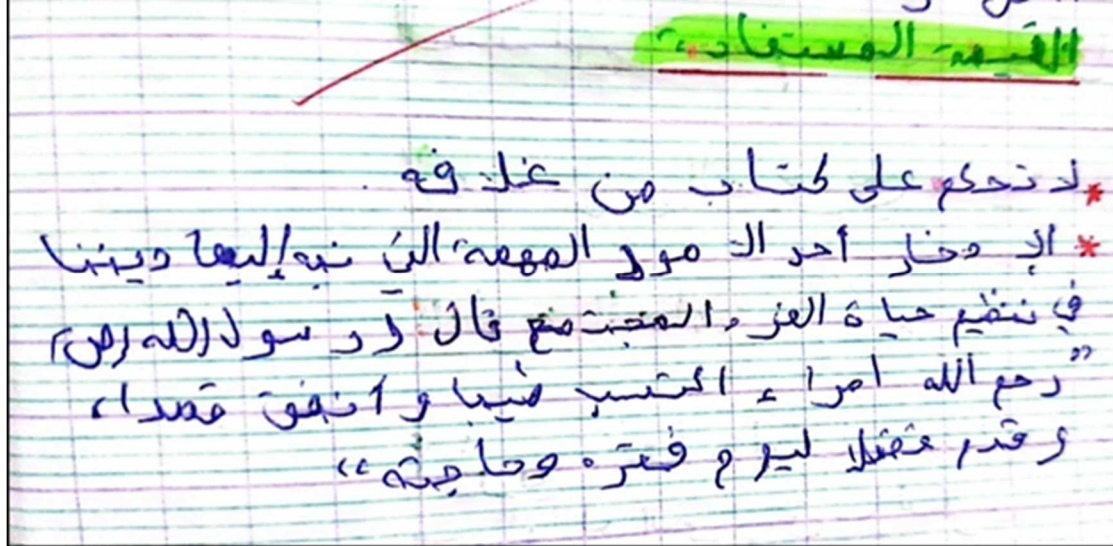 القيمة المستفادة:
* لا تحكم على كتاب من غلافه.
* الإدخار أحد الأمور المهمة التي نبه إليها ديننا
في تنظيم حياة الفرد والمجتمع قال رسول الله (ص)
"رحم الله امراء اكتسب طيبا وأنفق قصدا،
وقدم فضلا ليوم فقره وحاجته"